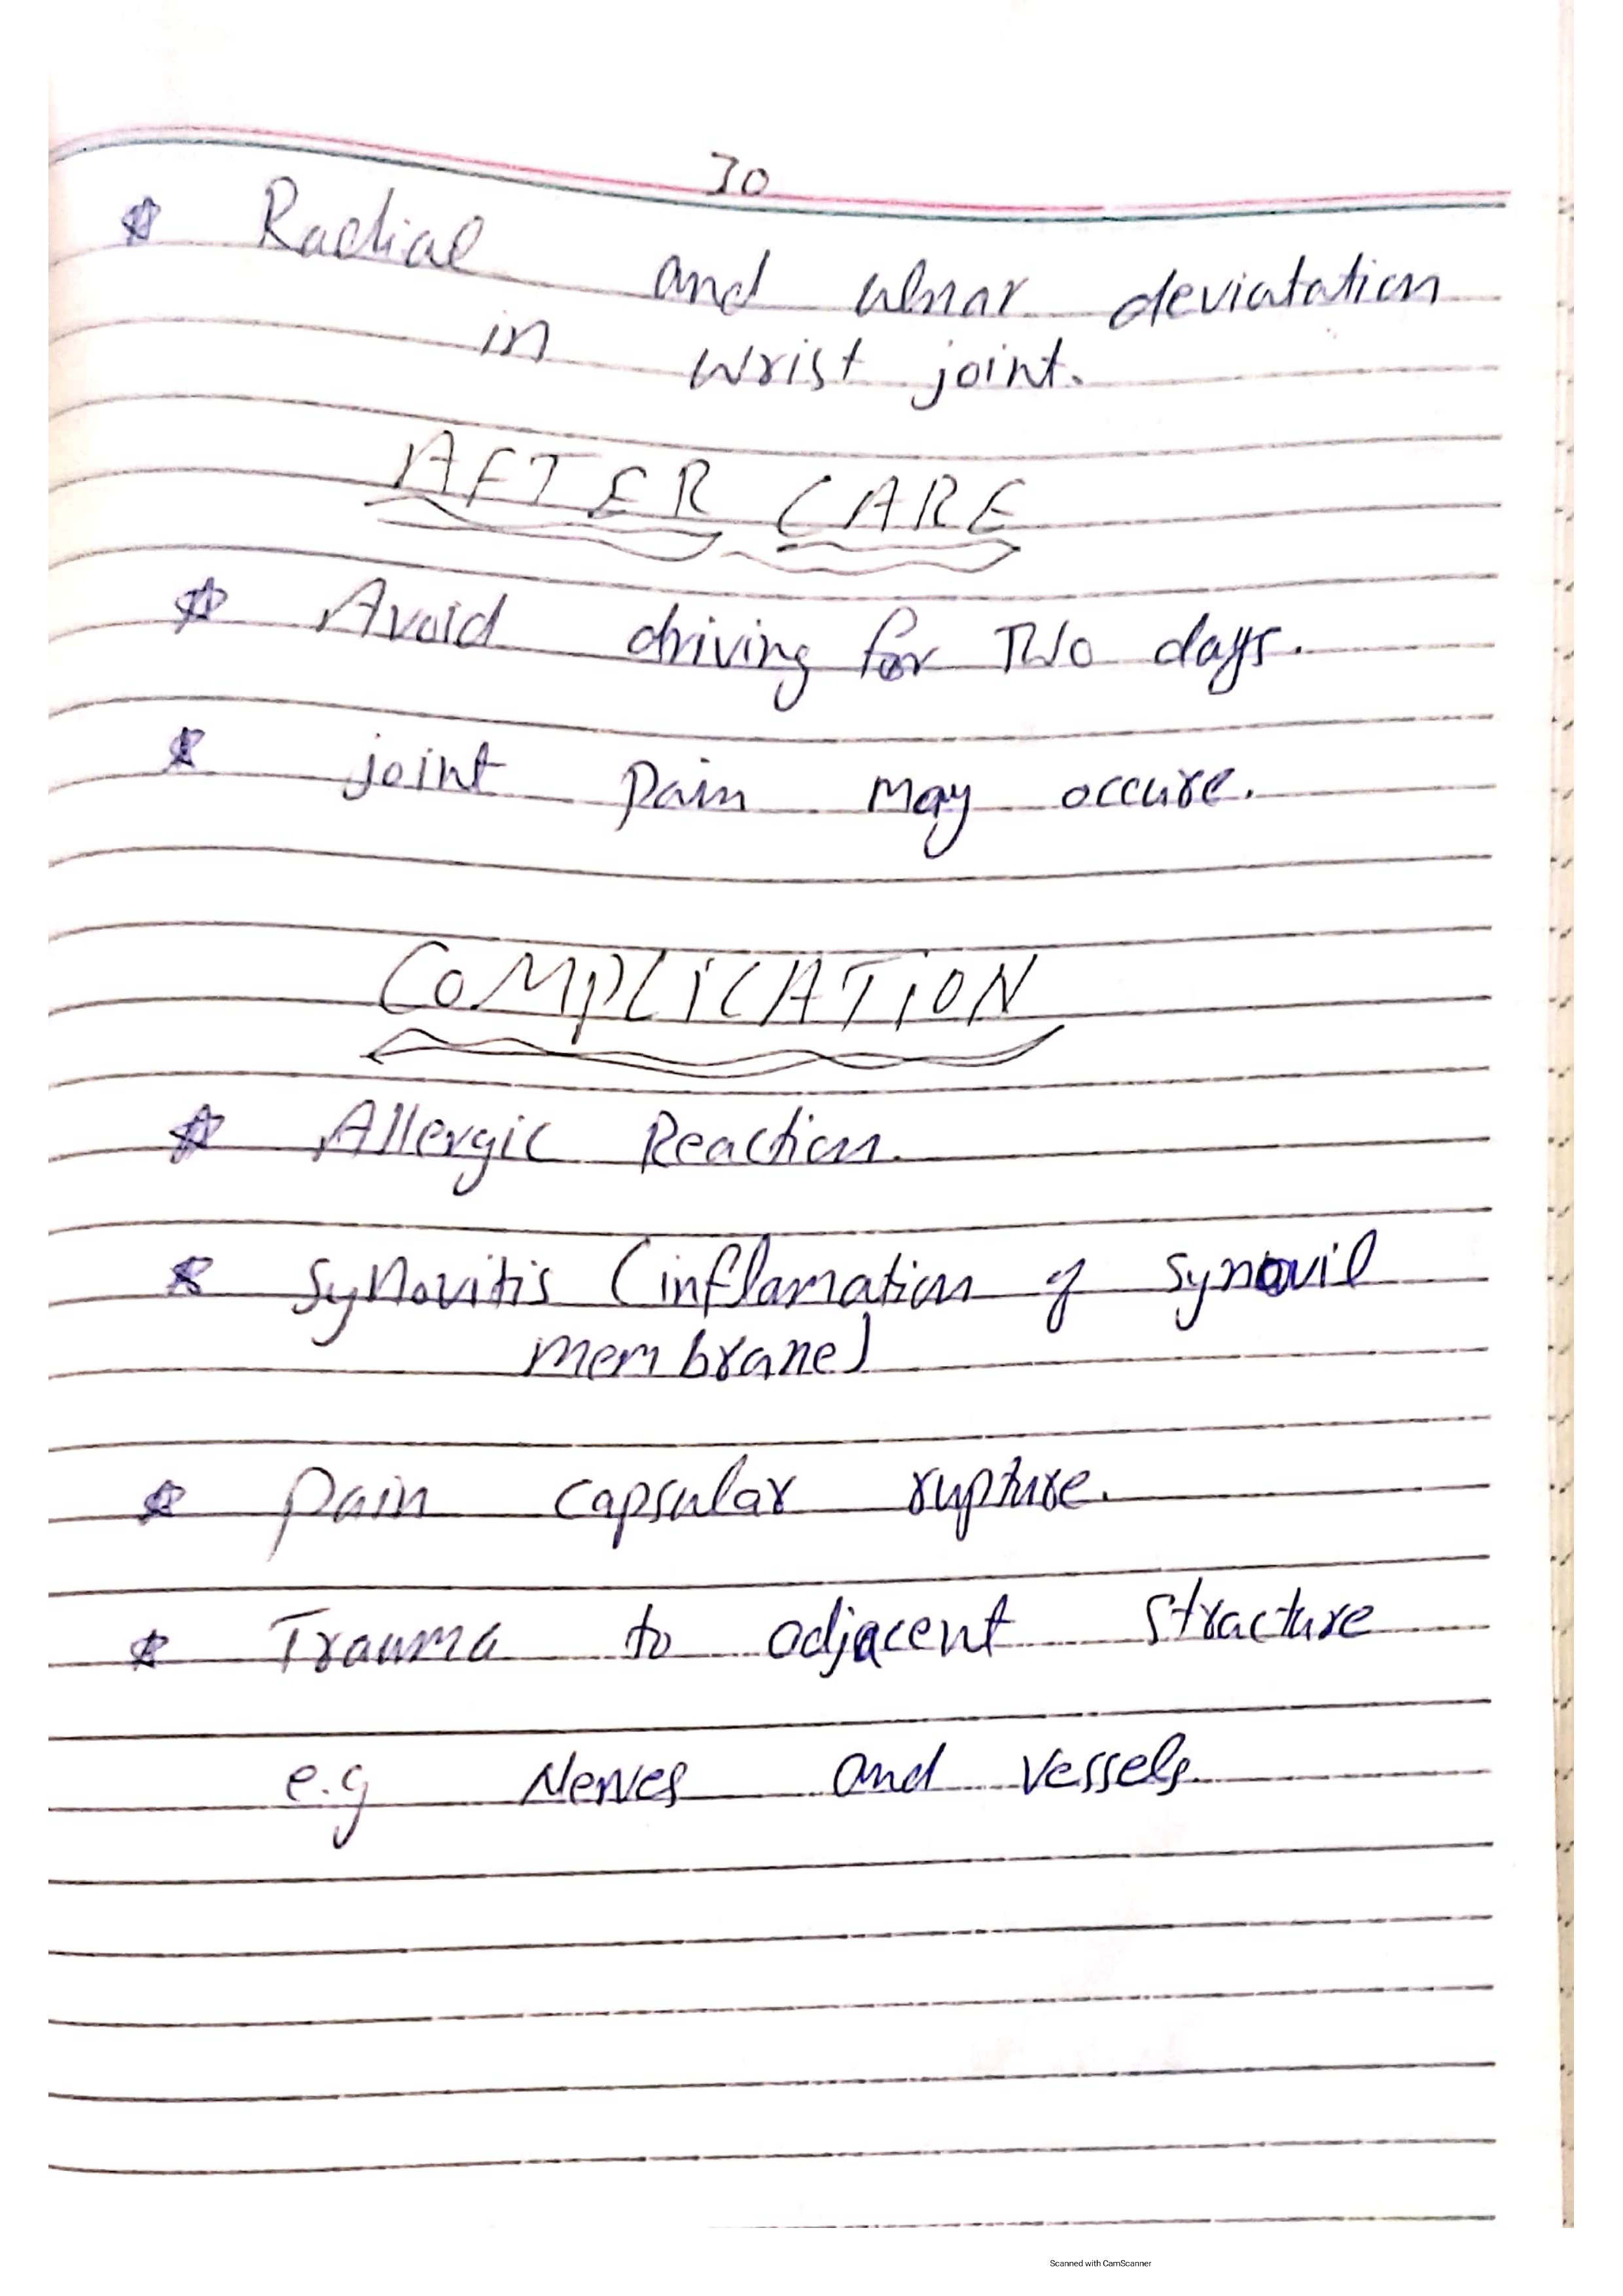 30
* Radial and ulnar deviatation
in wrist joint.
AFTER CARE
* Avoid driving for Two days.
* joint pain may occure.
COMPLICATION
* Allergic Reaction.
* Synovitis (inflamation of synovil
membrane)
* Pain capsular rupture.
* Trauma to adjacent stracture
e.g Nerves and vessels.
Scanned with CamScanner